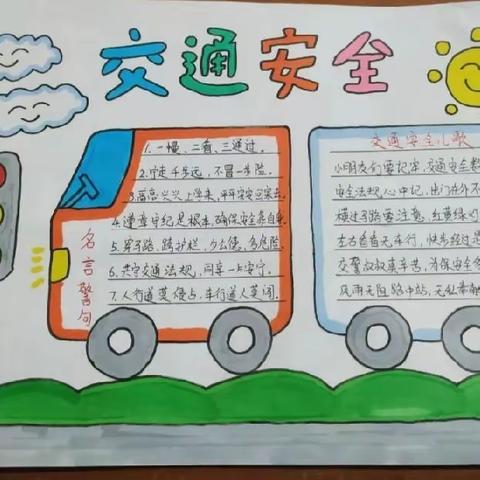 交通安全
名言警句
1. 一慢、二看、三通过。
2. 宁走千步远，不冒一步险。
3. 高高兴兴上学来，平平安安回家去。
4. 遵章守纪是根本，确保安全靠自身
5. 穿马路，跨护栏，多危险。
6. 共守交通法规，同享一片安宁。
7. 人行道莫侵占，车行道人莫闯。
交通安全儿歌
小朋友们要记牢，交通安全
安全法规心中记，出门在外不
横过马路要注意，红黄绿
左右看看无车行，快步经过是
交警叔叔真辛苦，为保安全
风雨无阻路中站，无私奉献